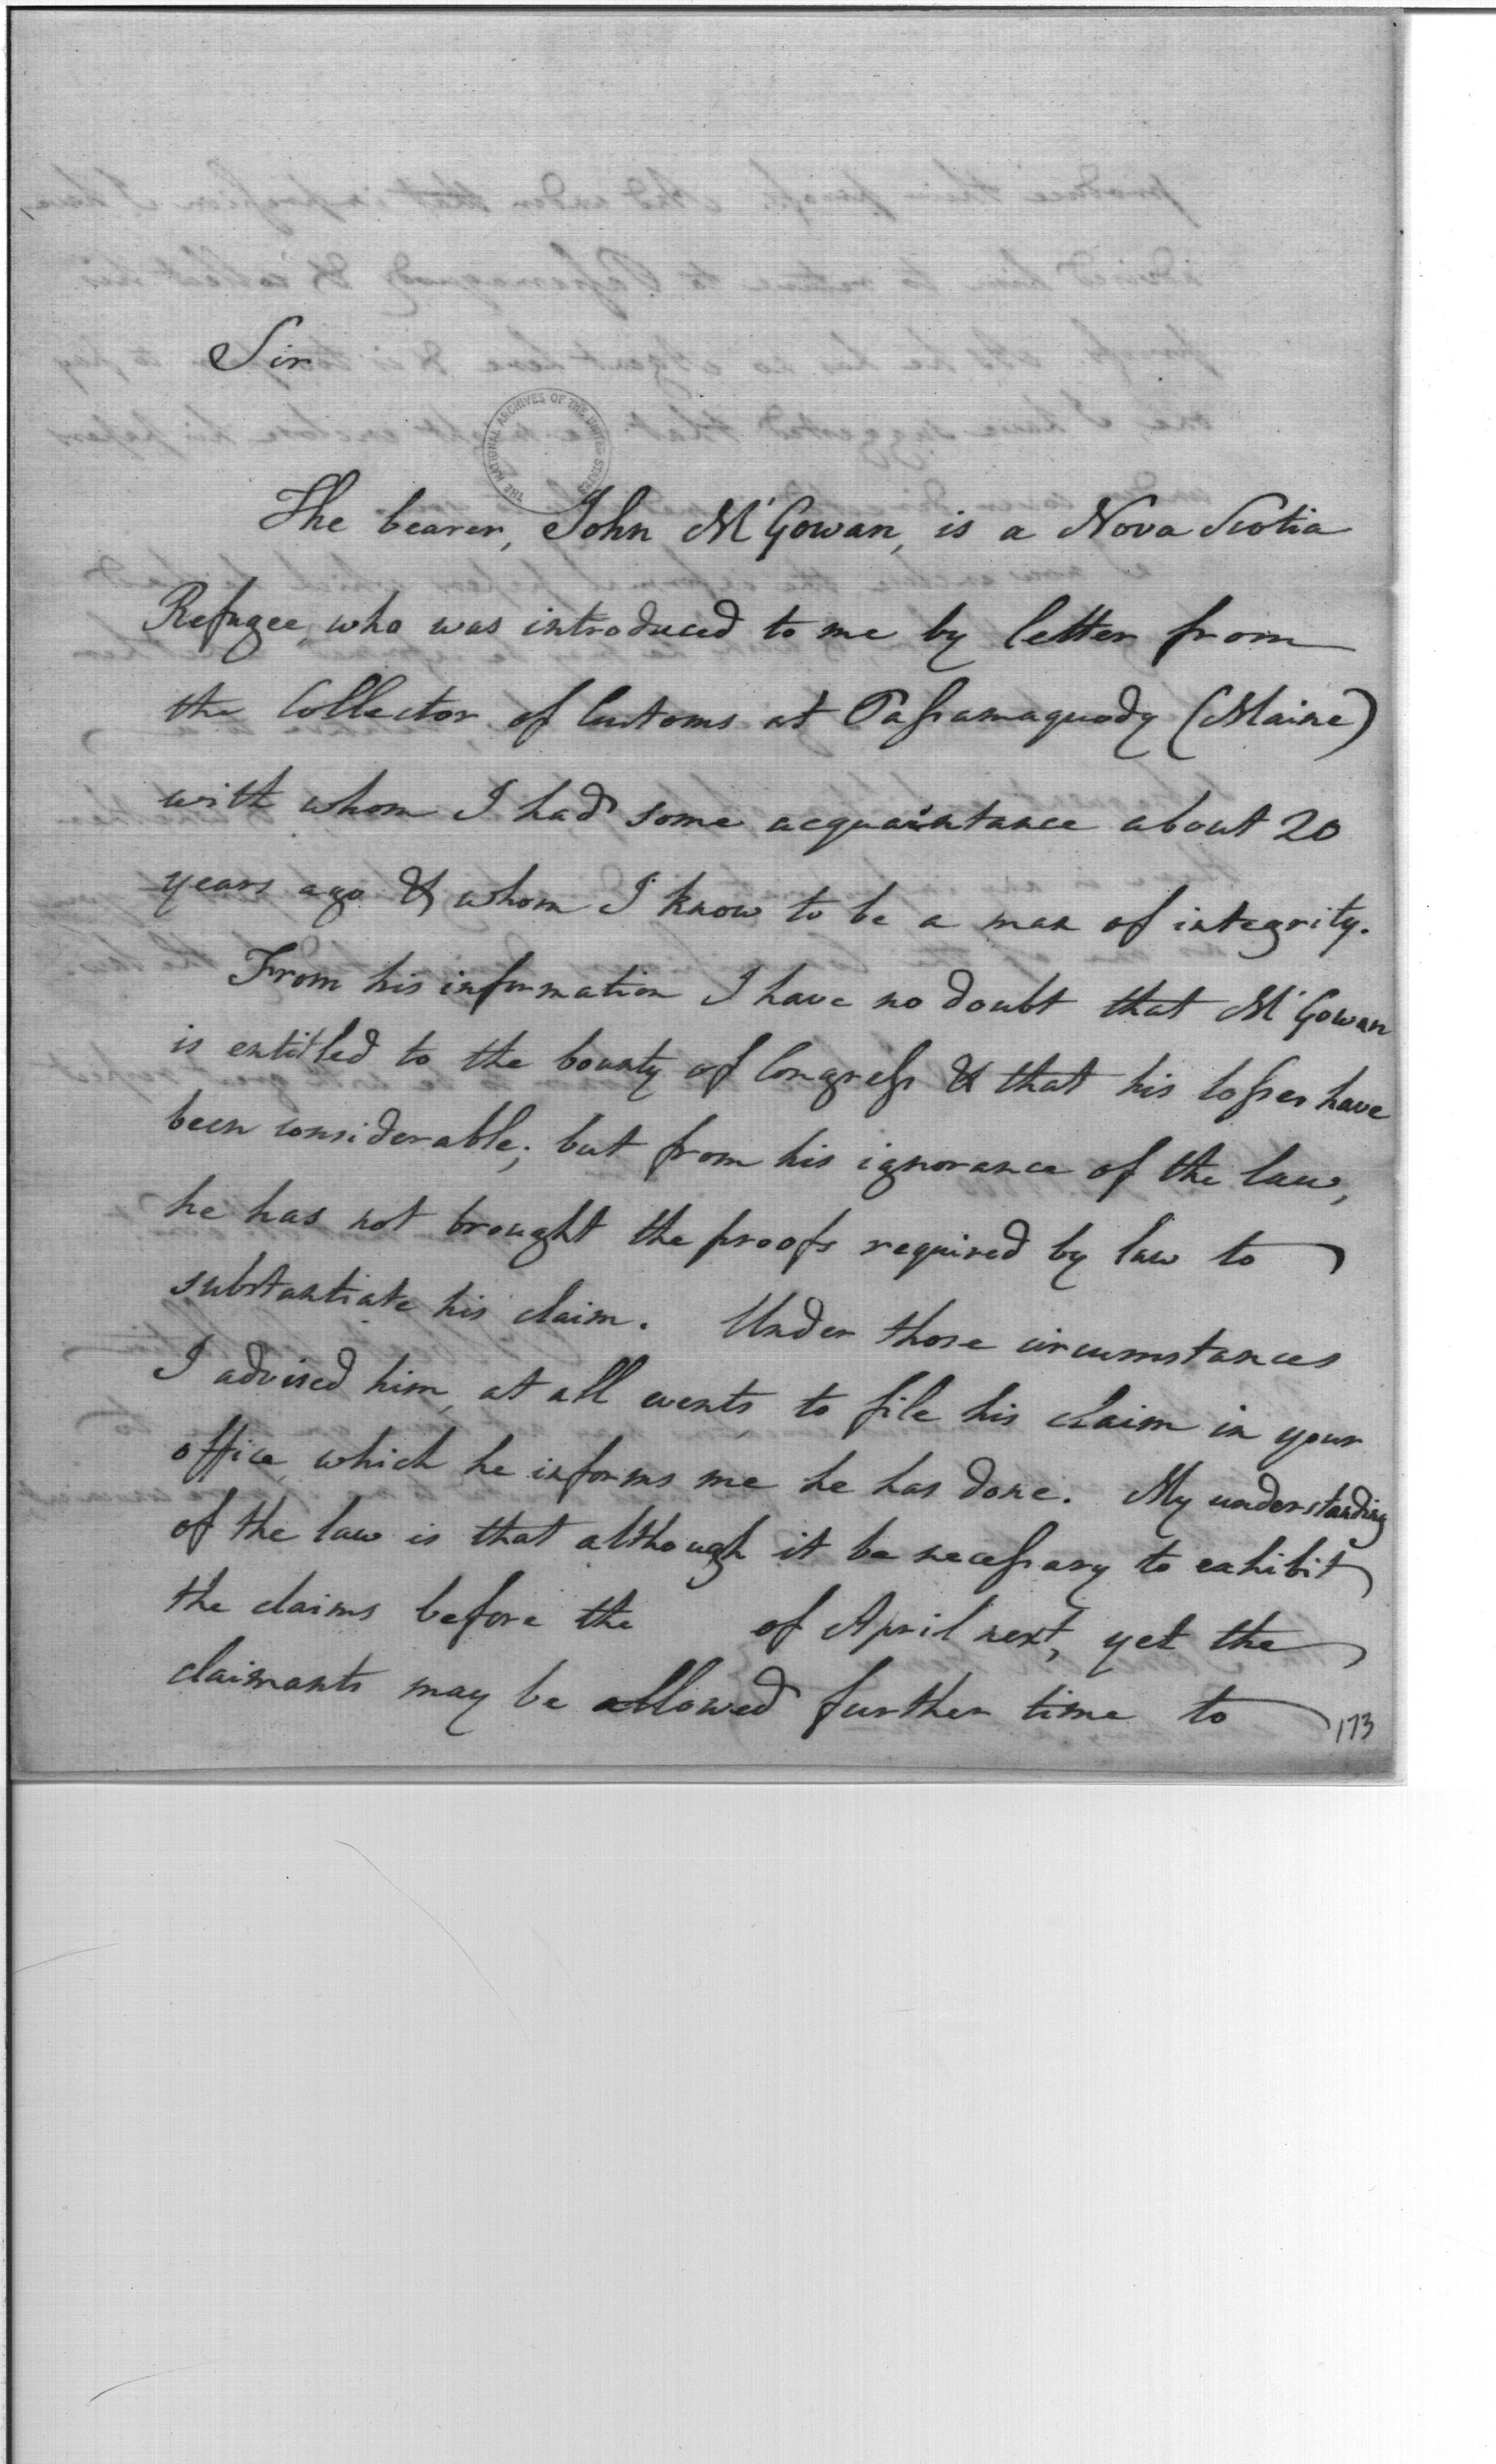 Sir
THE NATIONAL ARCHIVES OF THE UNITED STATES
The bearer, John M'Gowan, is a Nova Scotia
Refugee, who was introduced to me by letter from
the Collector of Customs at Passamaquody (Maine)
with whom I had some acquaintance about 20
years ago & whom I know to be a man of integrity.
From his information I have no doubt that M'Gowan
is entitled to the bounty of Congress & that his losses have
been considerable; but from his ignorance of the law,
he has not brought the proofs required by law to
substantiate his claim. Under those circumstances
I advised him, at all events to file his claim in your
office, which he informs me he has done. My understanding
of the law is that although it be necessary to exhibit
the claims before the of April next, yet the
claimants may be allowed further time to
173